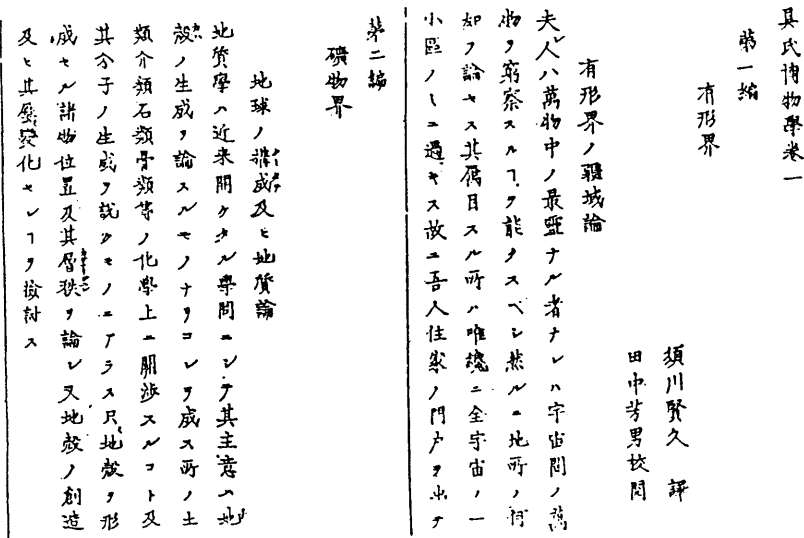 具氏博物學卷一
第一編
有形界
須川賢久 譯
田中芳男校閲
有形界ノ疆域論
夫レ人ハ萬物中ノ最靈ナル者ナレハ宇宙間ノ萬
物ヲ窮察スルヿヲ能クスベシ然ルニ地所ノ何
如ヲ論セス其屬目スル所ハ唯纔ニ全宇宙ノ一
小區ノミニ過キス故ニ吾人住家ノ門戸ヲ出テ
第二編
礦物界
地球ノ構成及ヒ地質論
地質學ハ近来開ケタル學問ニシテ其主意ハ地
殻ノ生成ヲ論スルモノナリコレヲ成ス所ノ土
類介類石類骨類等ノ化學上ニ關渉スルコト及
其分子ノ生成ヲ説クモノニアラス只地殻ヲ形
成セル諸物位置及其層秩ヲ論シ又地殻ノ創造
及ヒ其歴變化セシヿヲ檢討ス